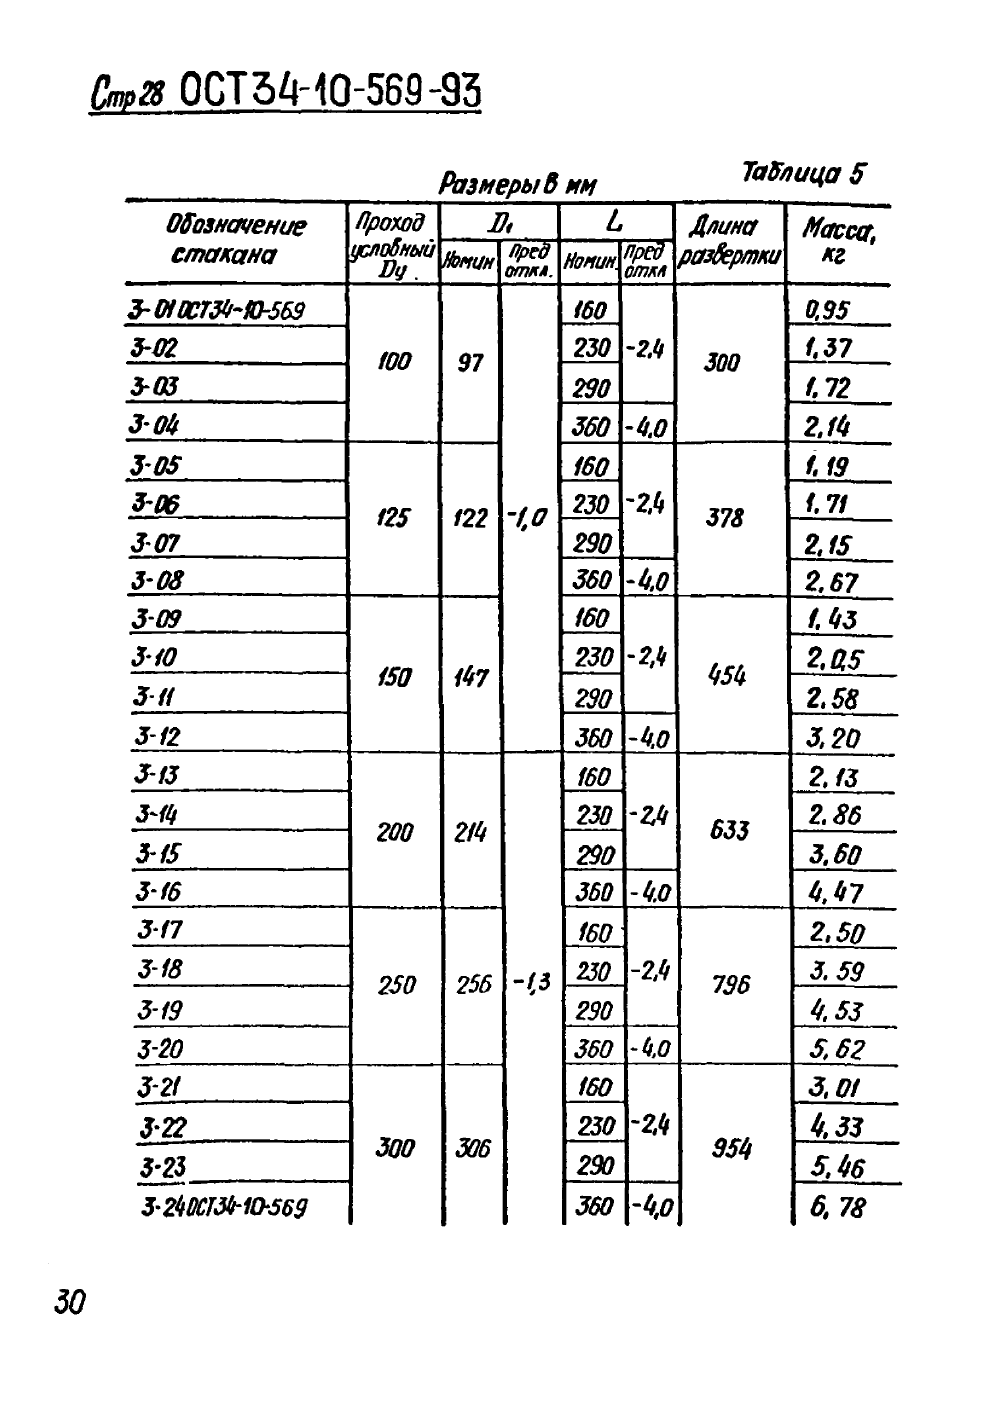 Стр 28 ОСТ 34-10-569-93
Таблица 5
Размеры в мм
Обозначение стакана | Проход условный Dу. | D₁ | L | Длина развертки | Масса, кг
Номин | Пред откл. | Номин. | Пред откл
3-01 ОСТ34-10-569 | 100 | 97 | -1,0 | 160 | -2,4 | 300 | 0,95
3-02 | 230 | 1,37
3-03 | 290 | 1,72
3-04 | 360 | -4,0 | 2,14
3-05 | 125 | 122 | 160 | -2,4 | 378 | 1,19
3-06 | 230 | 1,71
3-07 | 290 | 2,15
3-08 | 360 | -4,0 | 2,67
3-09 | 150 | 147 | 160 | -2,4 | 454 | 1,43
3-10 | 230 | 2,05
3-11 | 290 | 2,58
3-12 | 360 | -4,0 | 3,20
3-13 | 200 | 214 | -1,3 | 160 | -2,4 | 633 | 2,13
3-14 | 230 | 2,86
3-15 | 290 | 3,60
3-16 | 360 | -4,0 | 4,47
3-17 | 250 | 256 | 160 | -2,4 | 796 | 2,50
3-18 | 230 | 3,59
3-19 | 290 | 4,53
3-20 | 360 | -4,0 | 5,62
3-21 | 300 | 306 | 160 | -2,4 | 954 | 3,01
3-22 | 230 | 4,33
3-23 | 290 | 5,46
3-24 ОСТ34-10-569 | 360 | -4,0 | 6,78
30